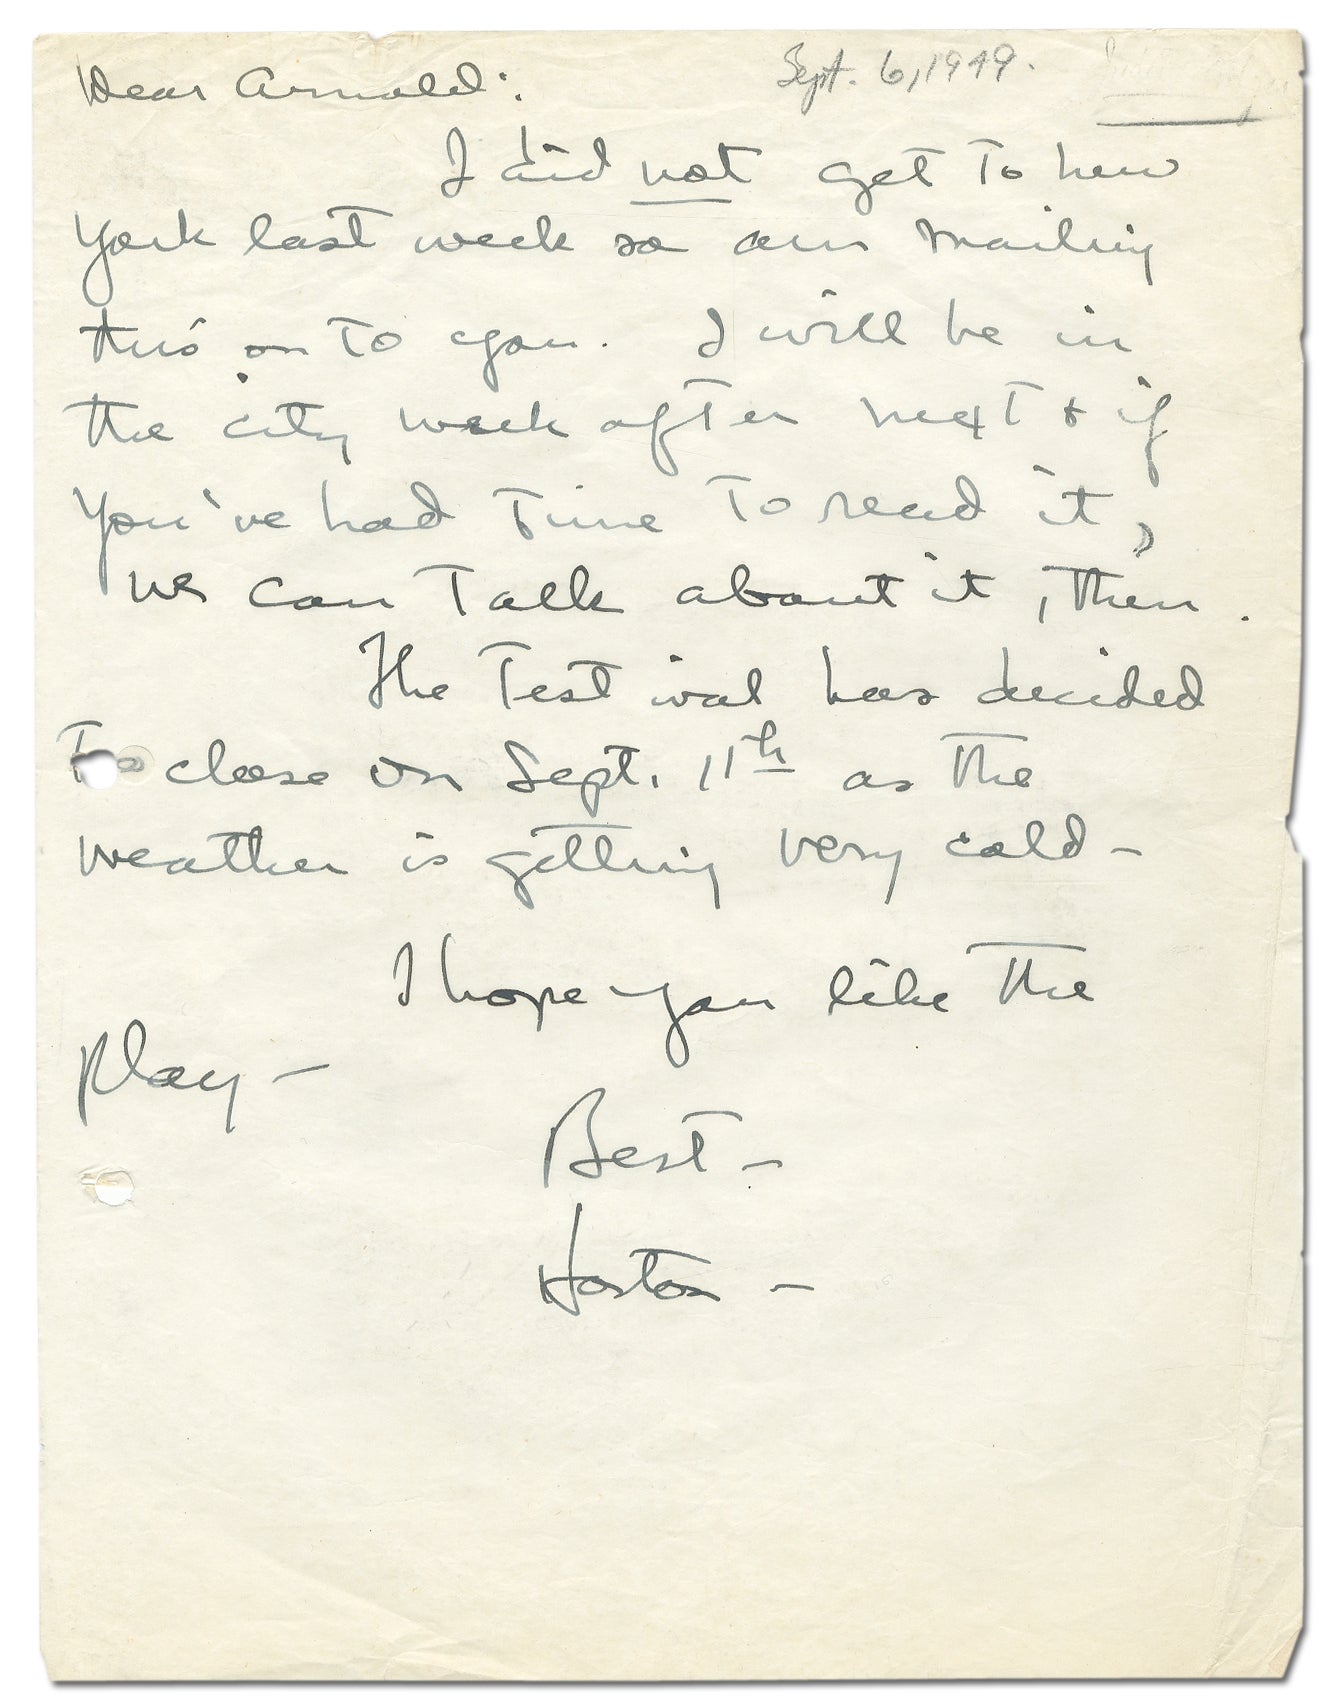 Sept. 6, 1949.
Dear Arnold:
I did not get to New
York last week so am mailing
this on to you. I will be in
the city week after next & if
you've had time to read it,
we can talk about it, then.
The Festival has decided
to close on Sept. 11th as the
weather is getting very cold –
I hope you like the
play –
Best –
Horton –